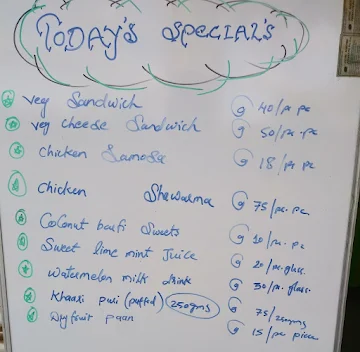 TODAY'S SPECIAL'S
Veg Sandwich @ 40/pr pc
Veg cheese Sandwich @ 50/pr.pc
Chicken Samosa @ 18/pr pc
Chicken Shawarma @ 75/pr.pc
Coconut barfi Sweets @ 10/pr.pc
Sweet lime mint Juice @ 20/pr.glass.
Watermelon milk drink @ 30/pr.glass.
Khaari puri (puffed) 250gms @ 75/250gms
Dryfruit paan @ 15/pr. piece